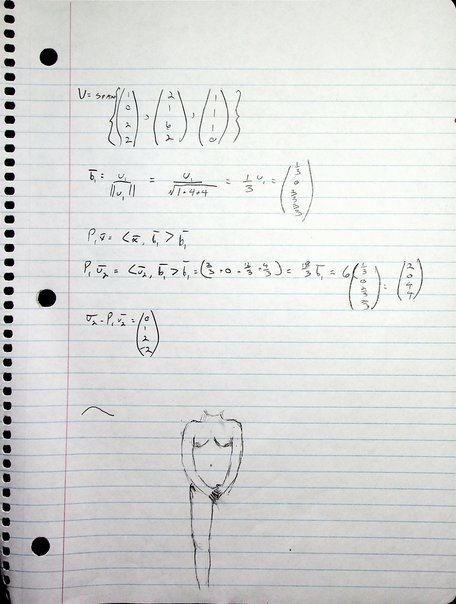 V = SPAN { (1 0 2 2), (2 1 6 2), (1 1 1 0) }
b̄₁ = u₁ / ||u₁|| = u₁ / √(1+4+4) = 1/3 u₁ = (1/3 0 2/3 2/3)
P₁x̄ = <x̄, b̄₁> b̄₁
P₁ū₂ = <ū₂, b̄₁> b̄₁ = (2/3 + 0 + 12/3 + 4/3) = 18/3 b̄₁ = 6 (1/3 0 2/3 2/3) = (2 0 4 4)
ū₂ - P₁ū₂ = (0 1 2 -2)